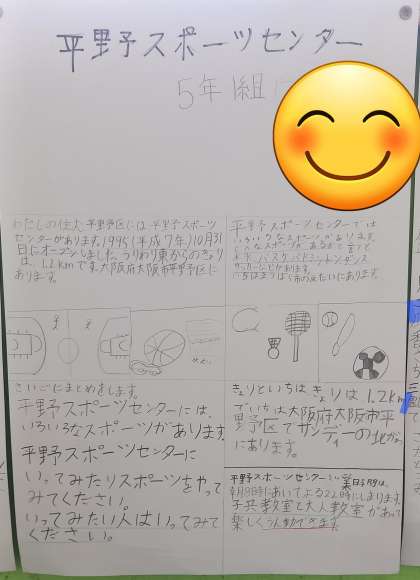 平野予スポーツセンター
5年1組
わたしの住む平野区には平野予スポーツ
センターがあります。1995(平成7年)10月31
日にオープンしました。うりわり東からのきょり
は、1.2kmです。大阪府大阪市平野区に
あります。
平野予スポーツセンターでは
いろいろなスポーツがあります。
どんなスポーツがあるかと言うと
バスケ、バドミントン、ダンス
サッカーなどがあります。
さいごにまとめをします。
平野スポーツセンターには、
いろいろなスポーツがあります。
平野スポーツセンターに
いってみたりスポーツをやって
みてください。
いってみたい人はいってみて
ください。
きょりといちは きょりは1.2km
でいちは大阪府大阪市平
野区でサンディーの地か
にあります。
平野スポーツセンターの
朝9時にあいてよる22時にしまります。
子共教室と大人教室があって
楽しくうん動できます。